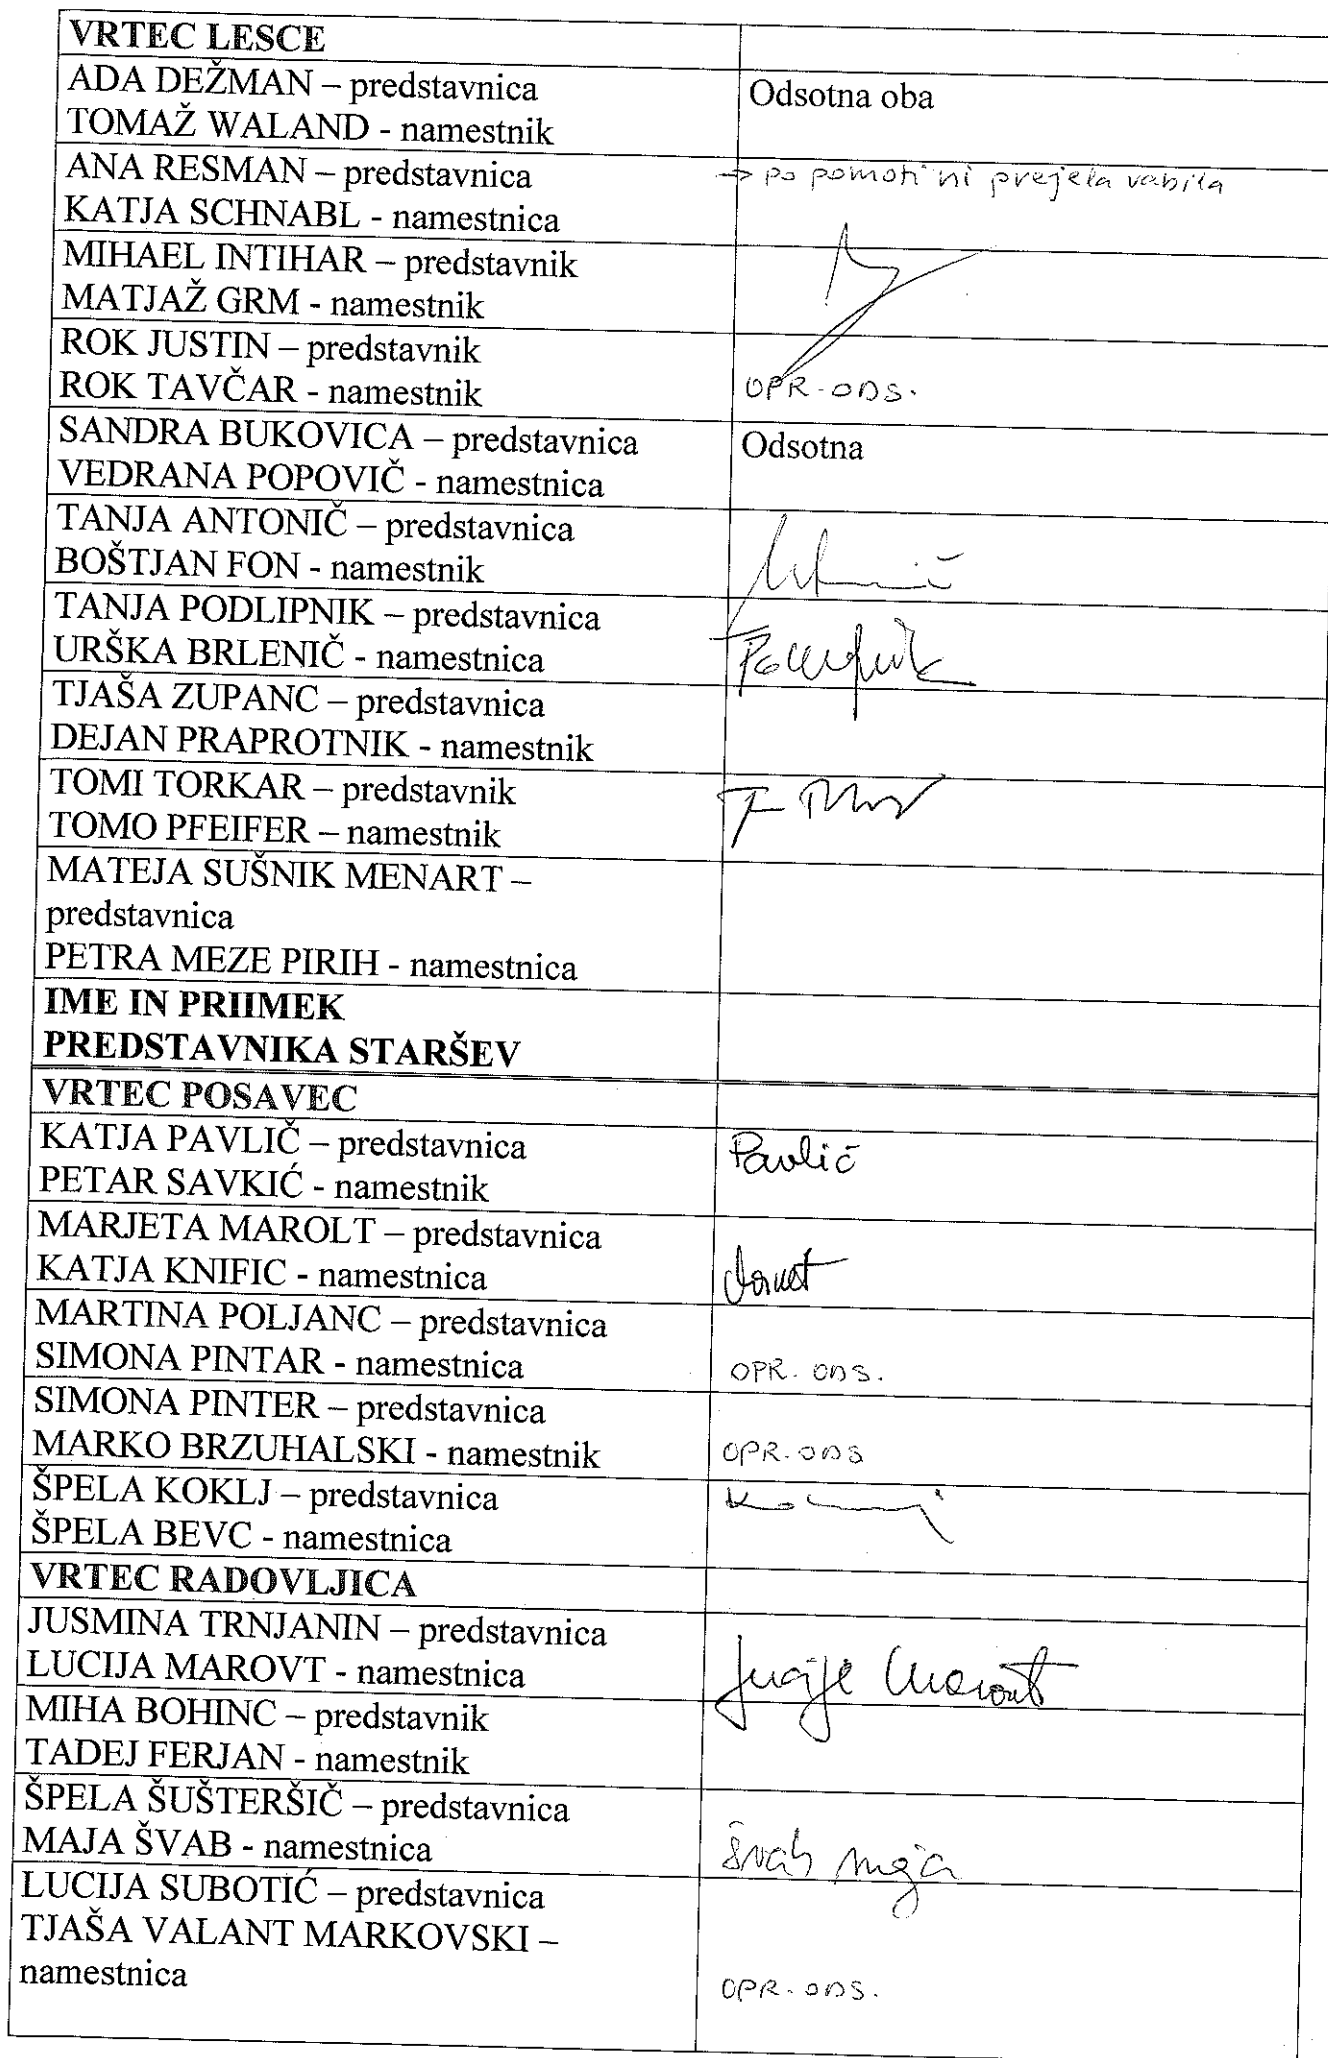 VRTEC LESCE
ADA DEŽMAN – predstavnica
Odsotna oba
TOMAŽ WALAND - namestnik
ANA RESMAN – predstavnica
→ po pomoti ni prejela vabila
KATJA SCHNABL - namestnica
MIHAEL INTIHAR – predstavnik
MATJAŽ GRM - namestnik
ROK JUSTIN – predstavnik
ROK TAVČAR - namestnik
OPR-ODS.
SANDRA BUKOVICA – predstavnica
Odsotna
VEDRANA POPOVIČ - namestnica
TANJA ANTONIČ – predstavnica
BOŠTJAN FON - namestnik
TANJA PODLIPNIK – predstavnica
URŠKA BRLENIČ - namestnica
TJAŠA ZUPANC – predstavnica
DEJAN PRAPROTNIK - namestnik
TOMI TORKAR – predstavnik
TOMO PFEIFER – namestnik
MATEJA SUŠNIK MENART –
predstavnica
PETRA MEZE PIRIH - namestnica
IME IN PRIIMEK
PREDSTAVNIKA STARŠEV
VRTEC POSAVEC
KATJA PAVLIČ – predstavnica
Pavlič
PETAR SAVKIĆ - namestnik
MARJETA MAROLT – predstavnica
KATJA KNIFIC - namestnica
MARTINA POLJANC – predstavnica
SIMONA PINTAR - namestnica
OPR. ODS.
SIMONA PINTER – predstavnica
MARKO BRZUHALSKI - namestnik
OPR. ODS
ŠPELA KOKLJ – predstavnica
ŠPELA BEVC - namestnica
VRTEC RADOVLJICA
JUSMINA TRNJANIN – predstavnica
LUCIJA MAROVT - namestnica
Lucija Marovt
MIHA BOHINC – predstavnik
TADEJ FERJAN - namestnik
ŠPELA ŠUŠTERŠIČ – predstavnica
MAJA ŠVAB - namestnica
Švab Maja
LUCIJA SUBOTIĆ – predstavnica
TJAŠA VALANT MARKOVSKI –
namestnica
OPR. ODS.